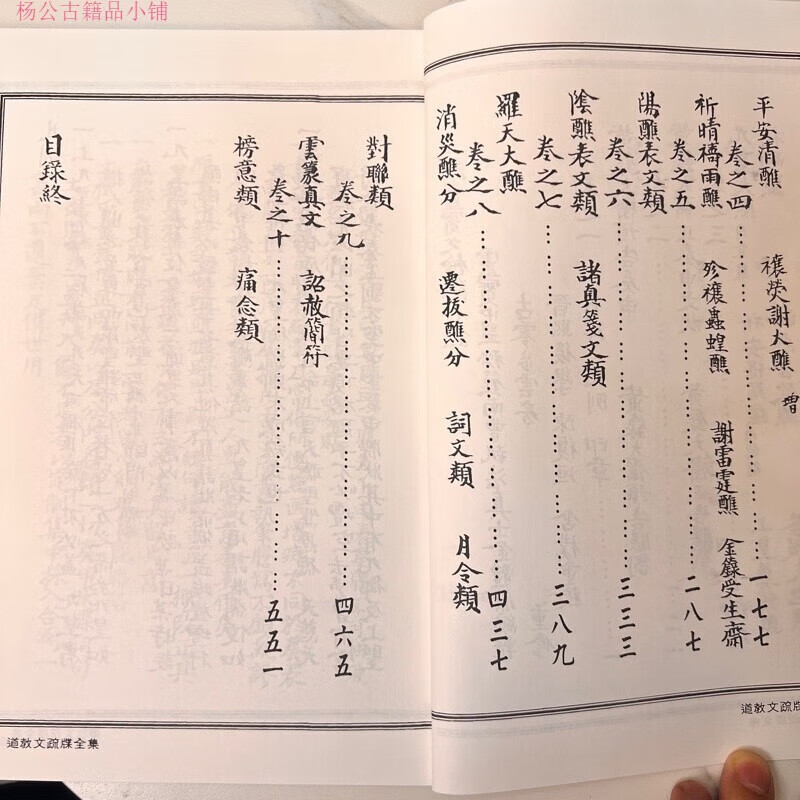 杨公古籍品小铺
平安清醮 禳熒謝火醮 增
卷之四 …………………… 一七七
祈晴禱雨醮 殄禳蟲蝗醮 謝雷霆醮 金籙受生齋
卷之五 …………………… 二八七
陽醮表文類
卷之六 …………………… 三三三
陰醮表文類 諸真箋文類
卷之七 …………………… 三八九
羅天大醮
卷之八 …………………… 四三七
消災醮分 遷拔醮分 詞文類 月令類
對聯類
卷之九 …………………… 四六五
雲篆真文 詔赦簡符
卷之十 …………………… 五五一
榜意類 痛念類
目錄終
道教文疏牒
道教文疏牒全集